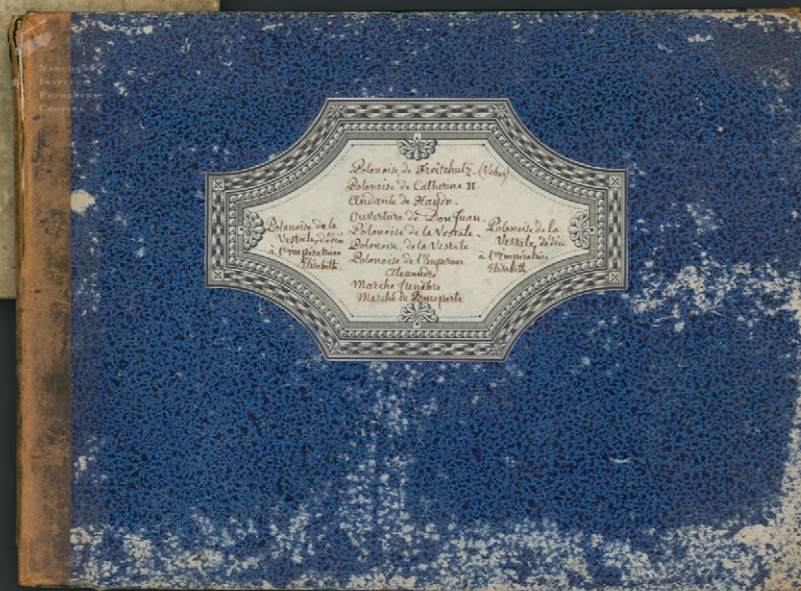 NARODOWY
INSTYTUT
FRYDERYKA
CHOPINA
Polonoise de Freischutz. (Veber)
Polonoise de Catherine II.
Andante de Haydn.
Ouverture de Don Juan.
Polonoise de la Vestale.
Polonoise de la Vestale
Polonoise de l'Empereur
Alexandre
Marche funèbre
Marche de Bonaparte
Polonoise de la
Vestale, dédiée
à l'Impératrice
Elisabeth.
Polonoise de la
Vestale, dédiée
à l'Impératrice
Elisabeth.